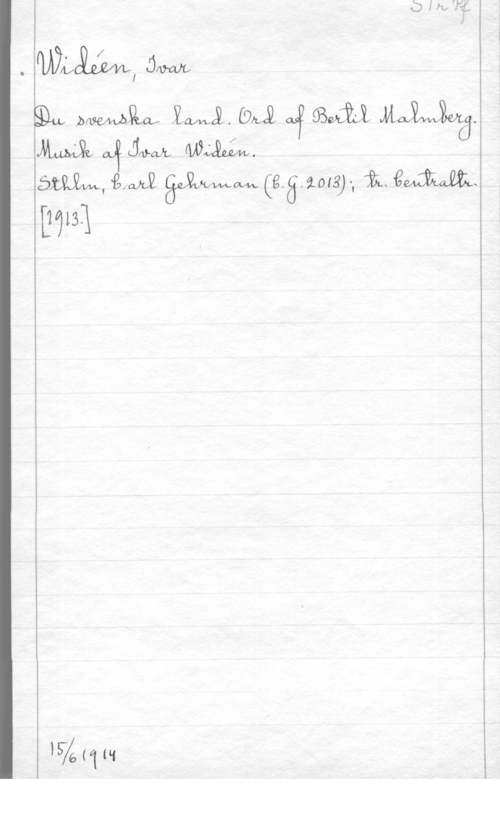 Widéen, Ivar
Du svenska land. Ord af Bertil Malmberg.
Musik af Ivar Widéen.
Sthlm, Carl Gehrman (C.G. 2013); tr. Centraltr.
[1913.]
15/6 1914